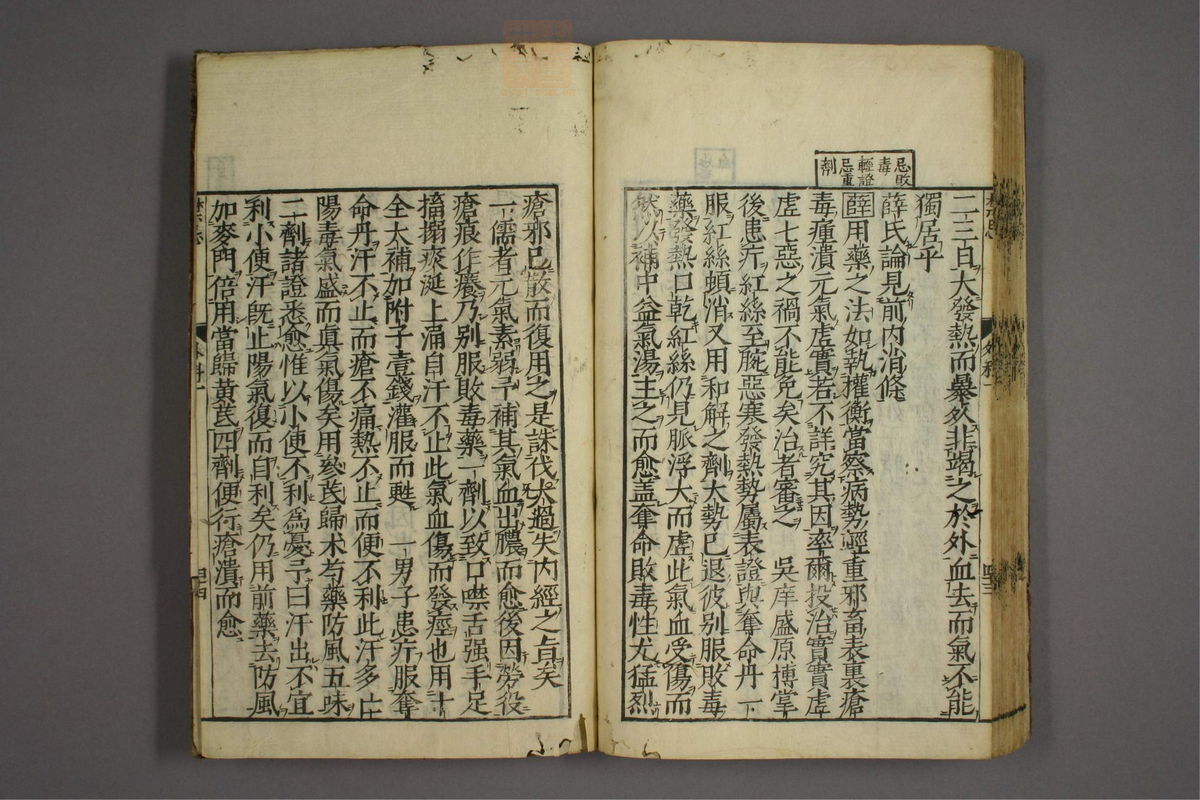 忌敗
毒
輕證
忌重
劑
二三日大發熱而暴然非竭之於外血去而氣不能
獨居乎
薛氏論見前内消條
薛用藥之法如執權衡當察病勢輕重邪畜表裏瘡
毒腫潰元氣虛實若不詳究其因率爾投治實實虛
虛七惡之禍不能免矣治者審之 吳庠盛原博掌
後患疔紅絲至腕惡寒發熱勢屬表證與奪命丹一
服紅絲頓消又用和解之劑大勢已退彼別服敗毒
藥發熱口乾紅絲仍見脈浮大而虛此氣血受傷而
然以補中益氣湯主之而愈蓋奪命敗毒性尤猛烈
瘡邪已散而復用之是誅伐太過失内經之旨矣
一儒者元氣素弱予補其氣血出膿而愈後因勞役
瘡痕作癢乃别服敗毒藥一劑以致口噤舌强手足
搐搦痰涎上涌自汗不止此氣血傷而發痙也用十
全大補加附子壹錢灌服而甦 一男子患疔服奪
命丹汗不止而瘡不痛熱不止而便不利此汗多亡
陽毒氣盛而真氣傷矣用參芪歸术芍藥防風五味
二十劑諸證悉愈惟以小便不利為憂予曰汗出不宜
利小便汗既止陽氣復而自利矣仍用前藥去防風
加麥門倍用當歸黃芪四劑便行瘡潰而愈
四十四